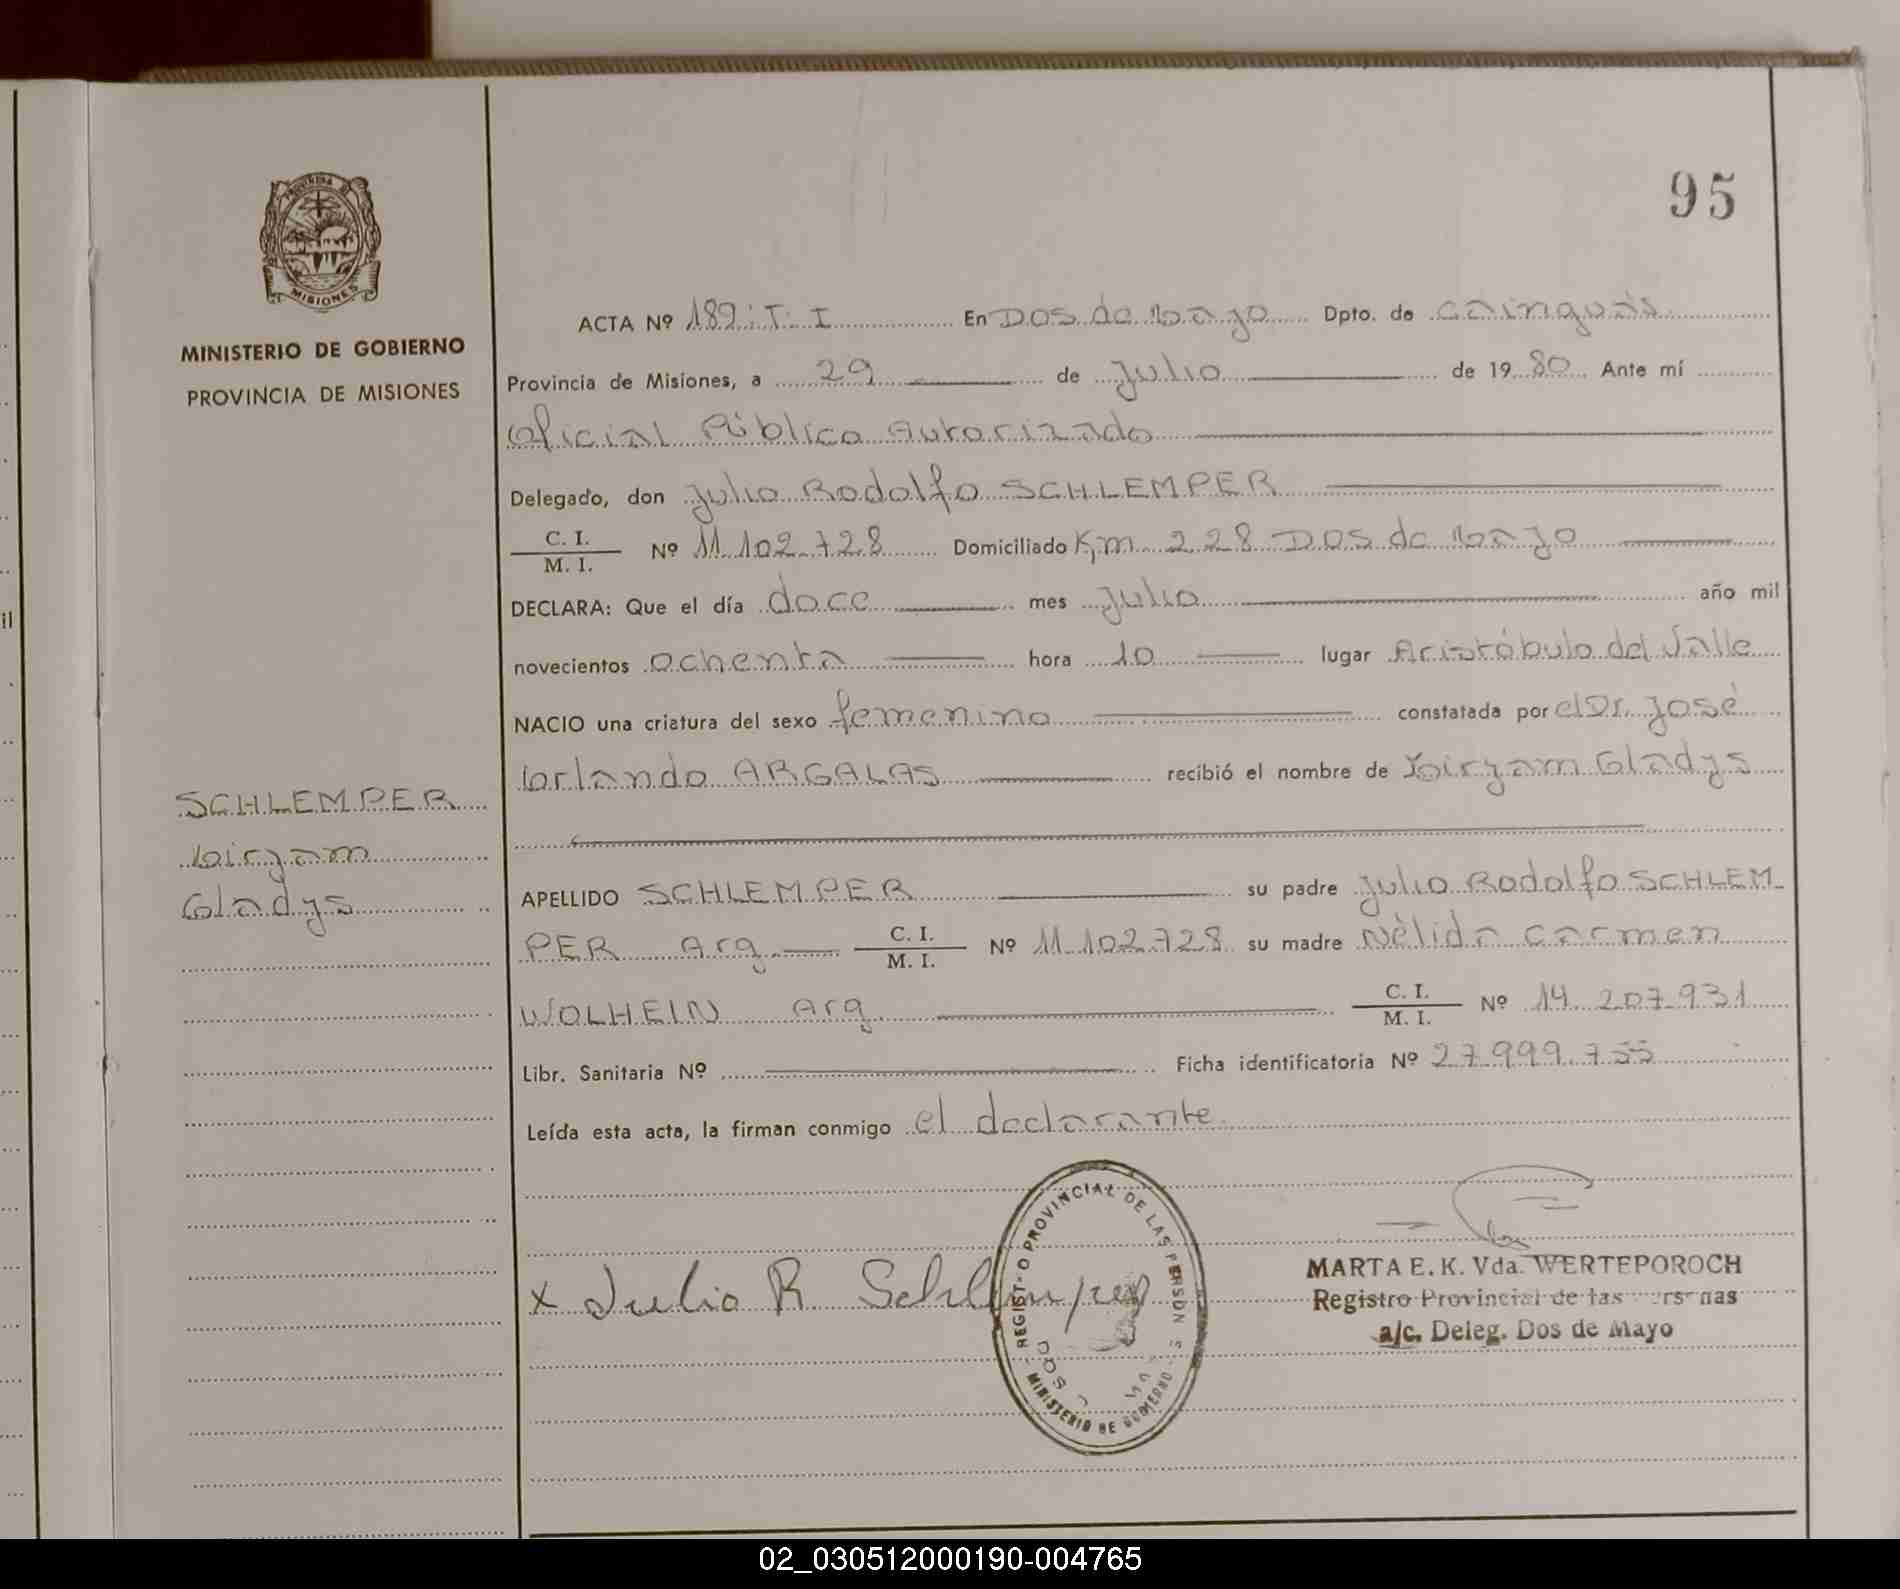 95
PROVINCIA DE
MISIONES
MINISTERIO DE GOBIERNO
PROVINCIA DE MISIONES
SCHLEMPER
Miryam
Gladys
ACTA Nº 189: T: I En Dos de Mayo Dpto. de Cainguás
Provincia de Misiones, a 29 de Julio de 1980 Ante mí
Oficial Público Autorizado
Delegado, don Julio Rodolfo SCHLEMPER
C. I.
M. I. Nº 11.102.728 Domiciliado Km 228 Dos de Mayo
DECLARA: Que el día doce mes Julio año mil
novecientos ochenta hora 10 lugar Aristóbulo del Valle
NACIO una criatura del sexo femenino constatada por el Dr. José
Orlando ARGALAS recibió el nombre de Miryam Gladys
APELLIDO SCHLEMPER su padre Julio Rodolfo SCHLEM
PER Arg C. I.
M. I. Nº 11.102.728 su madre Nélida Carmen
WOLHEIN Arg C. I.
M. I. Nº 14.207.931
Libr. Sanitaria Nº Ficha identificatoria Nº 27.999.755
Leída esta acta, la firman conmigo el declarante.
x Julio R. Schlemper
REGISTRO PROVINCIAL DE LAS PERSONAS
MINISTERIO DE GOBIERNO
DOS
MARTA E. K. Vda. WERTEPOROCH
Registro Provincial de las Personas
a/c. Deleg. Dos de Mayo
il
02_030512000190-004765